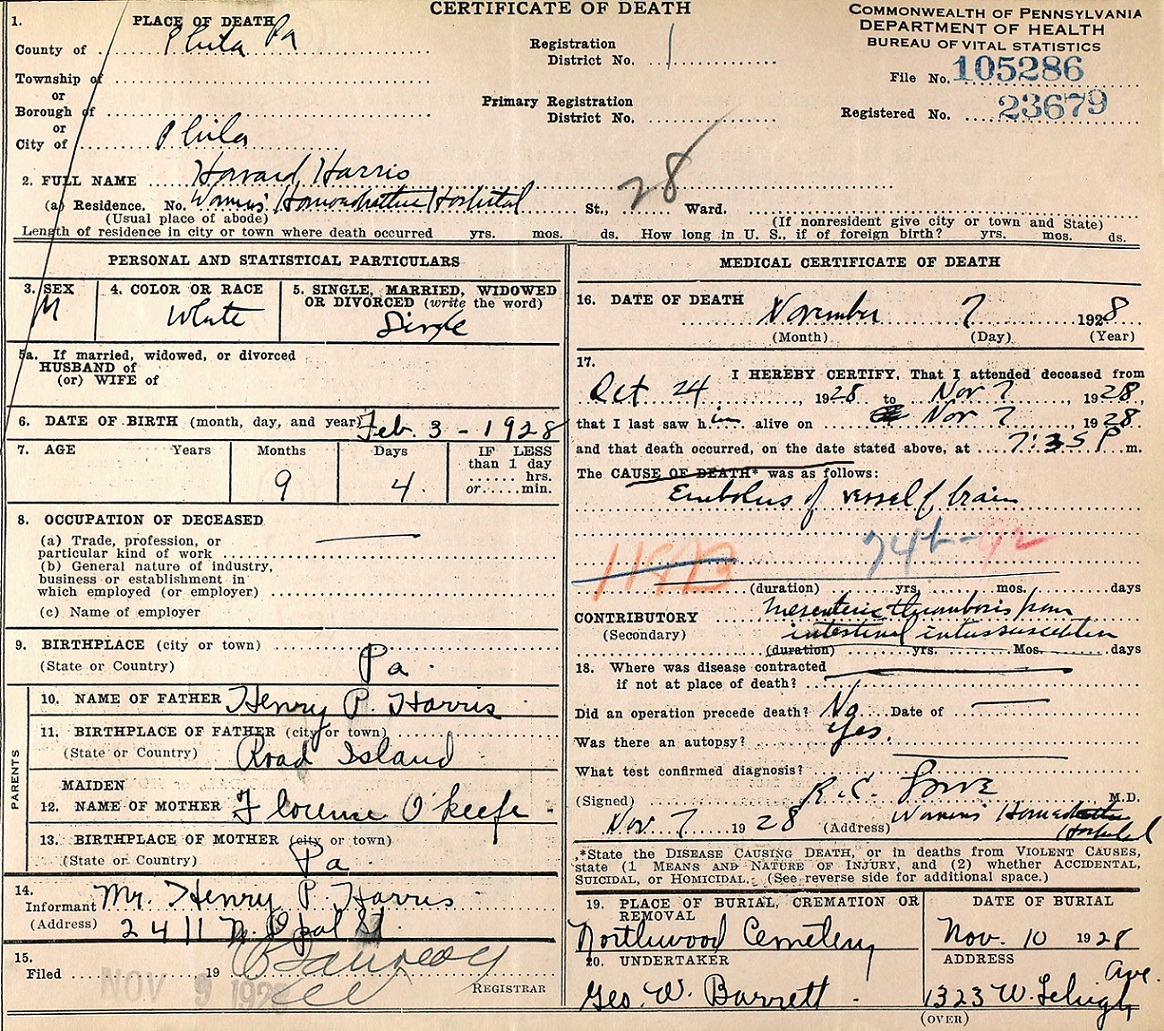 CERTIFICATE OF DEATH
COMMONWEALTH OF PENNSYLVANIA
DEPARTMENT OF HEALTH
BUREAU OF VITAL STATISTICS
File No. 105286
Registered No. 23679
1. PLACE OF DEATH
County of Phila Pa
Registration District No. 1
Township of
or
Borough of
Primary Registration District No.
or
City of Phila
2. FULL NAME Howard Harris
(a) Residence. No. Womens Homeopathic Hospital St., 28 Ward.
(Usual place of abode) (If nonresident give city or town and State)
Length of residence in city or town where death occurred yrs. mos. ds. How long in U. S., if of foreign birth? yrs. mos. ds.
PERSONAL AND STATISTICAL PARTICULARS
3. SEX M
4. COLOR OR RACE White
5. SINGLE, MARRIED, WIDOWED OR DIVORCED (write the word) Single
5a. If married, widowed, or divorced
HUSBAND of
(or) WIFE of
6. DATE OF BIRTH (month, day, and year) Feb 3 - 1928
7. AGE Years Months Days IF LESS than 1 day
9 4 ...... hrs. or ..... min.
8. OCCUPATION OF DECEASED
(a) Trade, profession, or particular kind of work
(b) General nature of industry, business or establishment in which employed (or employer)
(c) Name of employer
9. BIRTHPLACE (city or town)
(State or Country) Pa.
PARENTS
10. NAME OF FATHER Henry P. Harris
11. BIRTHPLACE OF FATHER (city or town)
(State or Country) Road Island
MAIDEN
12. NAME OF MOTHER Florence O'Keefe
13. BIRTHPLACE OF MOTHER (city or town)
(State or Country) Pa
14.
Informant Mr. Henry P Harris
(Address) 2411 N. Opal St
15.
Filed NOV 9 1928 19
REGISTRAR
MEDICAL CERTIFICATE OF DEATH
16. DATE OF DEATH
November 7 1928
(Month) (Day) (Year)
17. I HEREBY CERTIFY, That I attended deceased from
Oct 24, 1928 to Nov 7, 1928,
that I last saw him alive on Nov 7 1928
and that death occurred, on the date stated above, at 7:35 P m.
The CAUSE OF DEATH* was as follows:
Embolus of vessel of brain
74b-92
(duration) yrs. mos. days
CONTRIBUTORY Mesenteric thrombosis from
(Secondary) intestinal intussusception
(duration) yrs. Mos. days
18. Where was disease contracted
if not at place of death?
Did an operation precede death? No Date of
Was there an autopsy? Yes.
What test confirmed diagnosis?
(Signed) R.C. M.D.
Nov 7 1928 (Address) Womens Homeopathic Hospital
*State the DISEASE CAUSING DEATH, or in deaths from VIOLENT CAUSES,
state (1 MEANS AND NATURE OF INJURY, and (2) whether ACCIDENTAL,
SUICIDAL, OR HOMICIDAL. (See reverse side for additional space.)
19. PLACE OF BURIAL, CREMATION OR REMOVAL
Northwood Cemetery
DATE OF BURIAL
Nov. 10 1928
20. UNDERTAKER
Geo. W. Barrett.
ADDRESS
1323 W. Lehigh Ave.
(OVER)